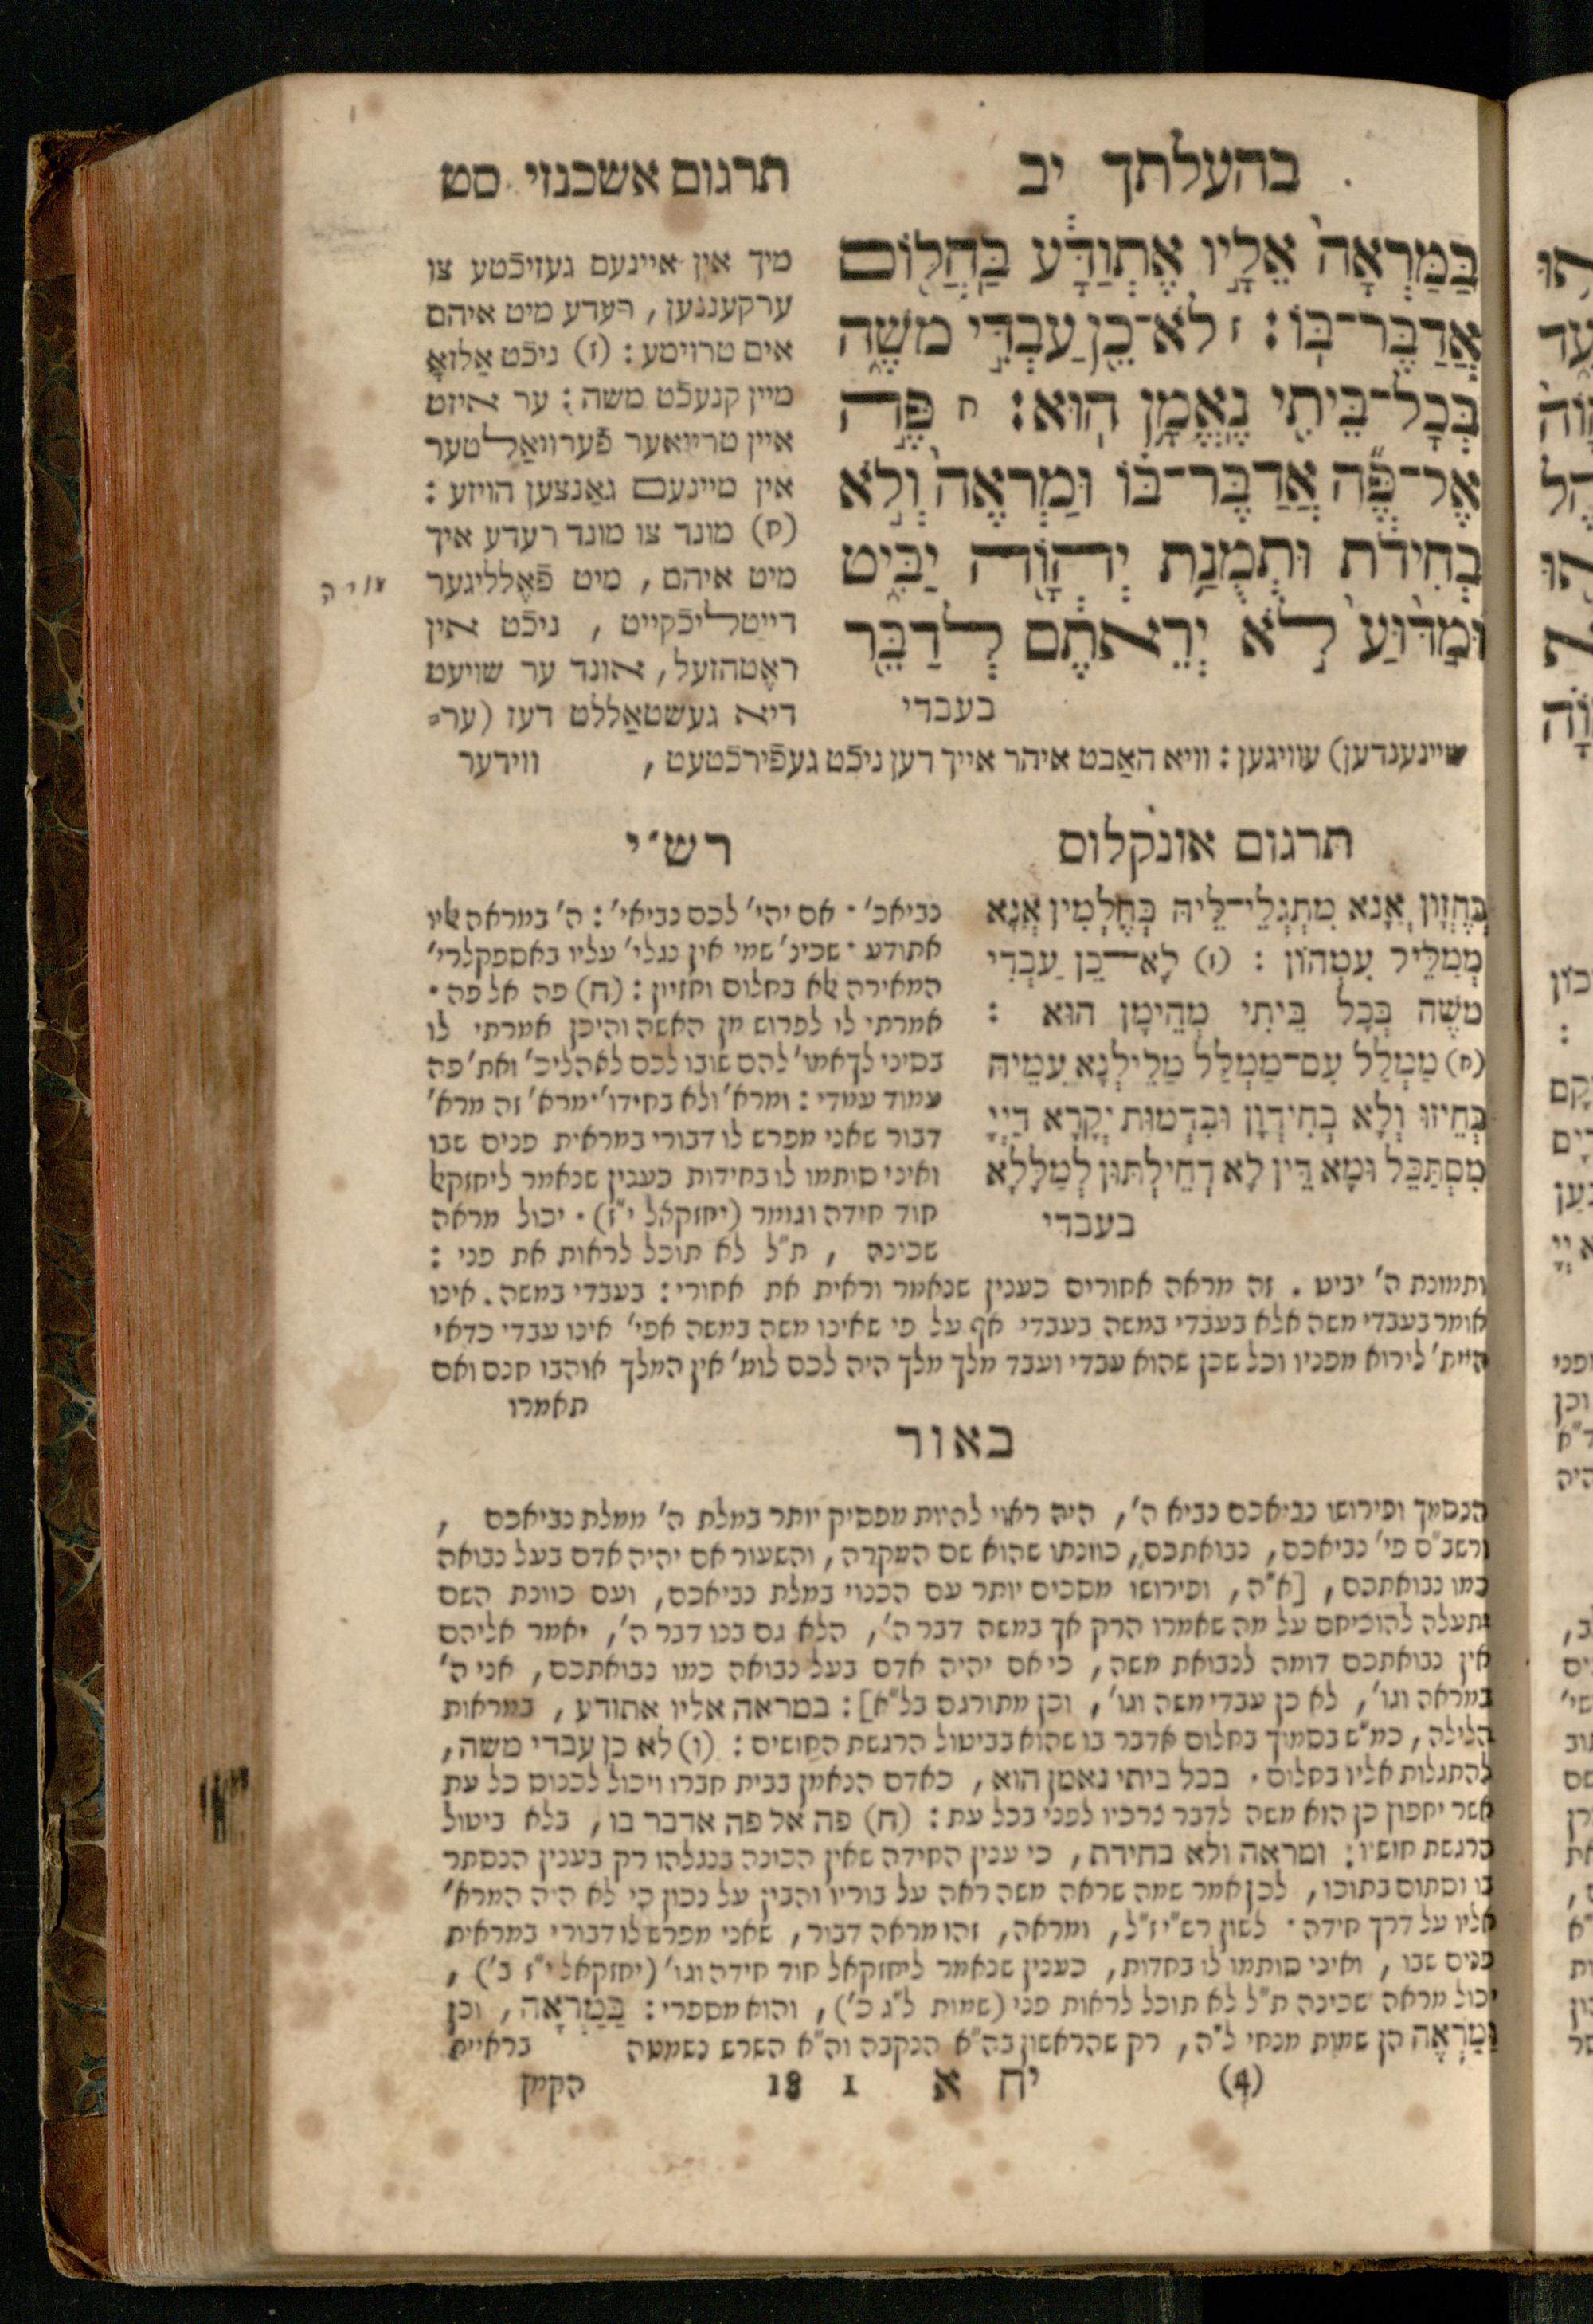 בהעלתך יב
תרגום אשכנזי סט
בַּמַּרְאָה֙ אֵלָ֣יו אֶתְוַדָּ֔ע בַּחֲל֖וֹם
אֲדַבֶּר־בּֽוֹ׃ ז לֹא־כֵ֖ן עַבְדִּ֣י מֹשֶׁ֑ה
בְּכָל־בֵּיתִ֖י נֶאֱמָ֥ן הֽוּא׃ ח פֶּ֣ה
אֶל־פֶּ֞ה אֲדַבֶּר־בּ֗וֹ וּמַרְאֶה֙ וְלֹ֣א
בְחִידֹ֔ת וּתְמֻנַ֥ת יְהוָ֖ה יַבִּ֑יט
וּמַדּ֙וּעַ֙ לֹ֣א יְרֵאתֶ֔ם לְדַבֵּ֖ר
בעבדי
מיך אין איינעם געזיכֿטע צו
ערקעננען, רעדע מיט איהם
אים טרוימע: (ז) ניכֿט אַלזאָ
מיין קנעכֿט משה: ער איזט
איין טרייאער פֿערוואַלטער
אין מיינעם גאַנצען הויזע:
(ח) מונד צו מונד רעדע איך
מיט איהם, מיט פֿאֶלליגער
דייטליכֿקייט, ניכֿט אין
ראֶטהזעל, אונד ער שויעט
דיא געשטאַללט דעז (ער-
שיינענדען) עוויגען: וויא האַבט איהר אייך דען ניכֿט געפֿירכֿטעט, ווידער
תרגום אונקלוס
בְּחֶזְוָן אֲנָא מִתְגְּלֵי־לֵיהּ בְּחֶלְמִין אֲנָא
מְמַלֵּיל עִמְּהוֹן: (ז) לָא־כֵן עַבְדִּי
משֶׁה בְּכָל בֵּיתִי מְהֵימָן הוּא:
(ח) מַמְלַל עִם־מַמְלַל מַלֵּילְנָא עִמֵּיהּ
בְּחֵיזוּ וְלָא בְחִידְוָן וּבִדְמוּת יְקָרָא דַיְיָ
מִסְתַּכֵּל וּמָא דֵין לָא דְחֵילְתּוּן לְמַלָּלָא
בעבדי
רש״י
נביאכ׳. אם יהי׳ לכם נביאי׳: ה׳ במראה אליו
אתודע. שכינ׳ שמי אין נגלי׳ עליו באספקלרי׳
המאירה אלא בחלום וחזיון: (ח) פה אל פה.
אמרתי לו לפרוש מן האשה והיכן אמרתי לו
בסיני לך אמו׳ להם שובו לכם לאהליכ׳ ואת׳ פה
עמוד עמדי: ומרא׳ ולא בחידו׳. מרא׳ זה מרא׳
דבור שאני מפרש לו דבורי במראית פנים שבו
ואיני סותמו לו בחידות כענין שנאמר ליחזקאל
חוד חידה וגומר (יחזקאל י״ז). יכול מראה
שכינה, ת״ל לא תוכל לראות את פני:
ותמונת ה׳ יביט. זה מראה אחורים כענין שנאמר וראית את אחורי: בעבדי במשה. אינו
אומר בעבדי משה אלא בעבדי במשה בעבדי אף על פי שאינו משה במשה אפי׳ אינו עבדי כדאי
היית׳ לירוא מפניו וכל שכן שהוא עבדי ועבד מלך מלך היה לכם לומ׳ אין המלך אוהבו חנם ואם
תאמרו
באור
הנסמך ופירושו נביאכם נביא ה׳, היה ראוי להיות מפסיק יותר במלת ה׳ ממלת נביאכם,
ורשב״ם פי׳ נביאכם, נבואתכם, כוונתו שהוא שם המקרה, והשעור אם יהיה אדם בעל נבואה
כמו נבואתכם, [א״ה, ופירושו מסכים יותר עם הכנוי במלת נביאכם, ועם כוונת השם
יתעלה להוכיחם על מה שאמרו הרק אך במשה דבר ה׳, הלא גם בנו דבר ה׳, יאמר אליהם
אין נבואתכם דומה לנבואת משה, כי אם יהיה אדם בעל נבואה כמו נבואתכם, אני ה׳
במראה וגו׳, לא כן עבדי משה וגו׳, וכן מתורגם בל״א]: במראה אליו אתודע, במראות
הלילה, כמ״ש בסמוך בחלום אדבר בו שהוא בביטול הרגשת החושים: (ז) לא כן עבדי משה,
להתגלות אליו בחלום. בכל ביתי נאמן הוא, כאדם הנאמן בבית חברו ויכול לכנוס כל עת
אשר יחפון כן הוא משה לדבר צרכיו לפני בכל עת: (ח) פה אל פה אדבר בו, בלא ביטול
הרגשת חושיו: ומראה ולא בחידת, כי ענין החידה שאין הכונה בנגלהו רק בענין הנסתר
בו וסתום בתוכו, לכן אמר שמה שראה משה ראה על בוריו והבין על נכון כי לא היה המרא׳
אליו על דרך חידה. לשון רש״י ז״ל, ומראה, זהו מראה דבור, שאני מפרש לו דבורי במראית
פנים שבו, ואיני סותמו לו בחדות, כענין שנאמר ליחזקאל חוד חידה וגו׳ (יחזקאל י״ז ב׳),
יכול מראה שכינה ת״ל לא תוכל לראות פני (שמות ל״ג כ׳), והוא מספרי: בַּמַּרְאָה, וכן
וּמַרְאֶה הן שמות מנחי ל״ה, רק שהראשון בה״א הנקבה וה״א השרש נשמטה בראיית
(4) יח א 1 18 הקמן